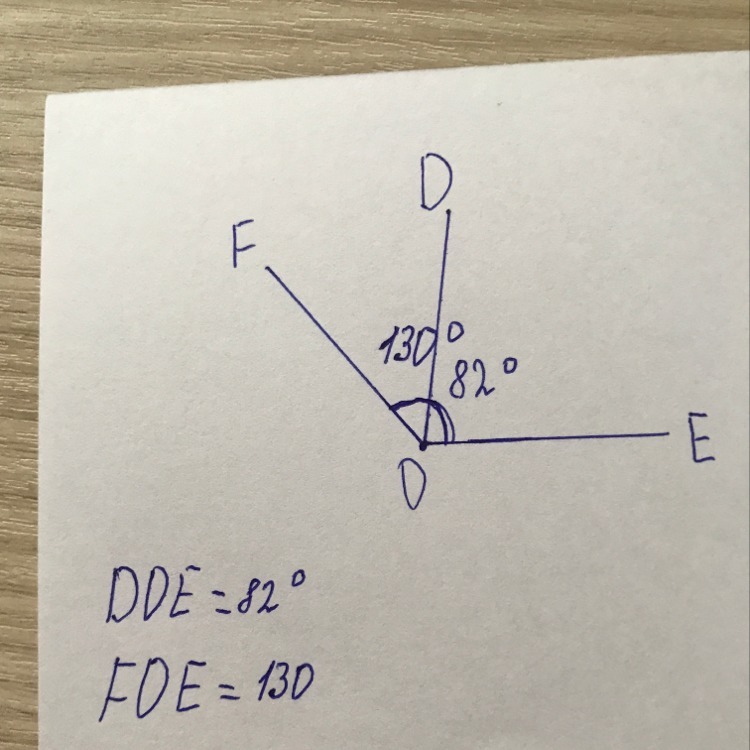 D
F
130°
82°
E
O
DOE = 82°
FOE = 130